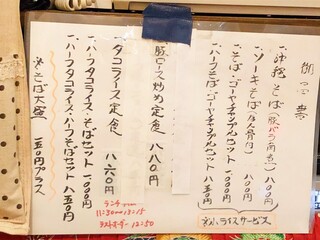 御つ書
・沖縄そば(豚バラ角煮) 八〇〇円
・ソーキそば(なん骨肉) 八〇〇円
・そば・ゴーヤチャンプルセット 一、〇〇〇円
・ハーフそば・ゴーヤチャンプルセット 八五〇円
そば、ライスサービス
豚ロース炒め定食 八八〇円
・タコライス定食 八六〇円
・ハーフタコライス・そばセット 一、〇〇〇円
・ハーフタコライス・ハーフそばセット 八五〇円
※そば大盛 一五〇円プラス
ランチ
11:30〜13:15
ラストオーダー 12:50